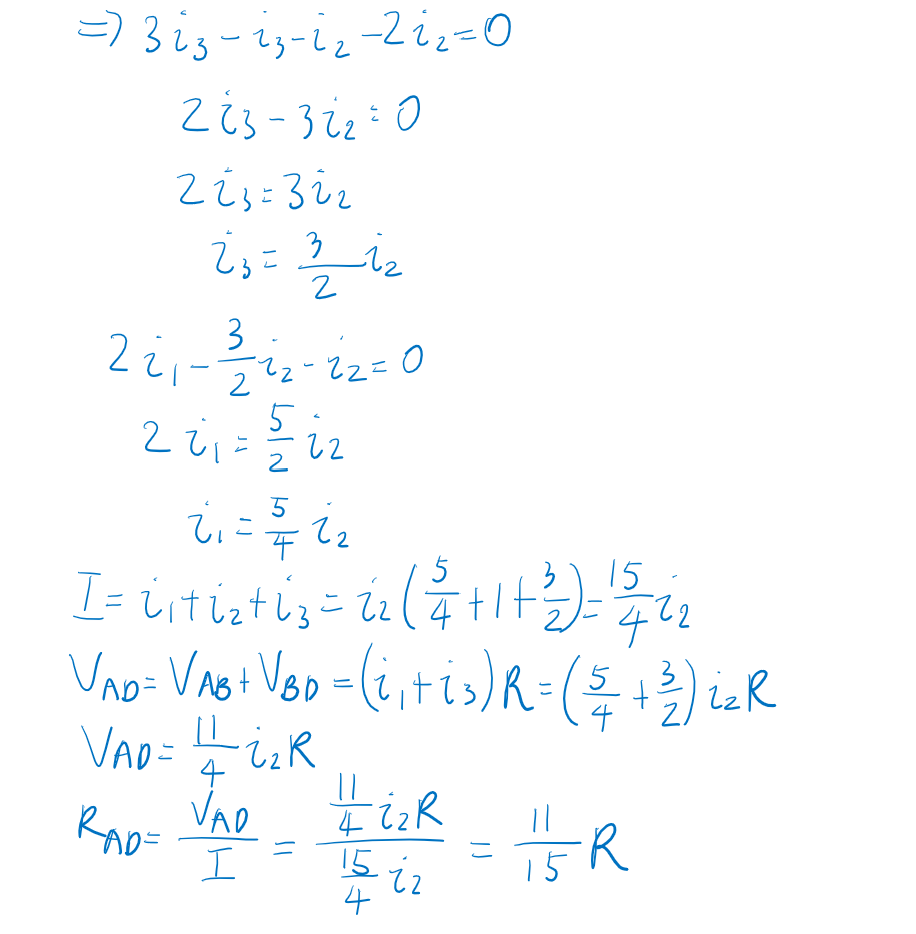 ⇒ 3i₃ - i₃ - i₂ - 2i₂ = 0
2i₃ - 3i₂ = 0
2i₃ = 3i₂
i₃ = 3/2 i₂
2i₁ - 3/2 i₂ - i₂ = 0
2i₁ = 5/2 i₂
i₁ = 5/4 i₂
I = i₁ + i₂ + i₃ = i₂(5/4 + 1 + 3/2) = 15/4 i₂
V_AD = V_AB + V_BD = (i₁ + i₃)R = (5/4 + 3/2) i₂R
V_AD = 11/4 i₂R
R_AD = V_AD/I = (11/4 i₂R)/(15/4 i₂) = 11/15 R